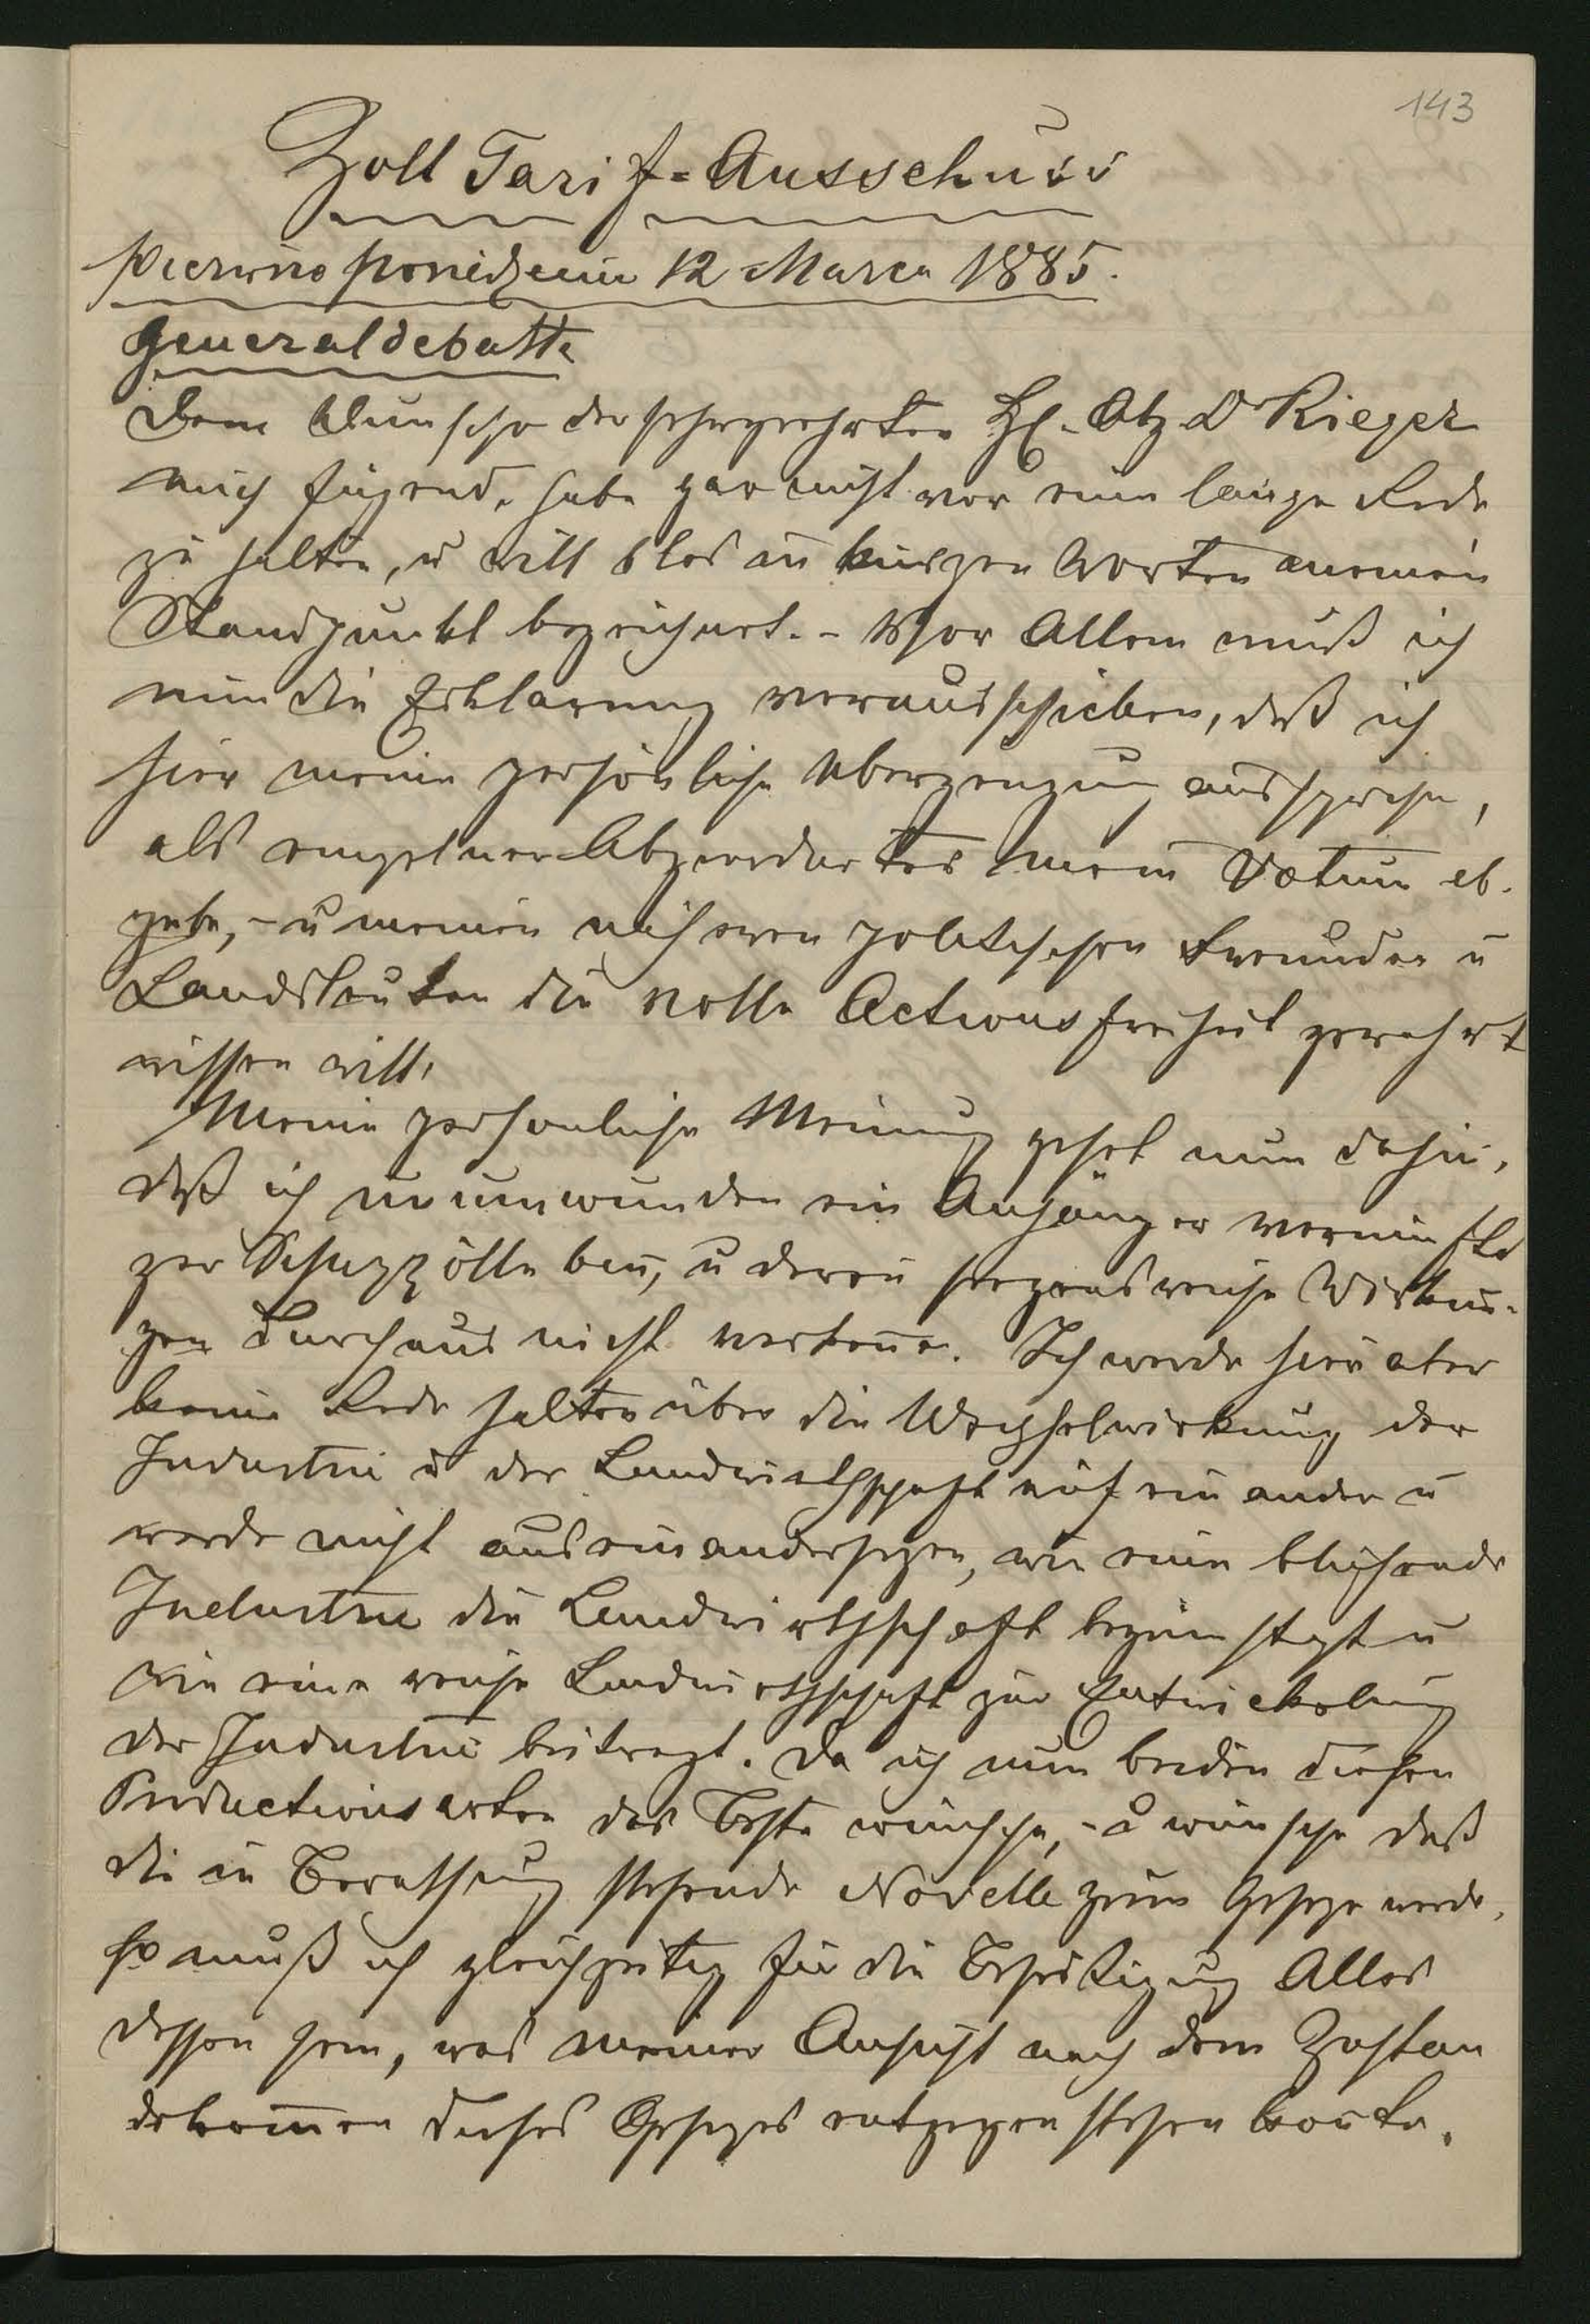 143
Zoll Tarif=Ausschuss
12 Marca 1885.
Generaldebatte
Dem Wunsche des sehrgeehrten H. Abg Dr Rieger
mich fügend, habe gar nicht vor eine lange Rede
zu halten, u will blos in kurzen Worten meinen
Standpunkt bezeichnet. - Vor Allem muß ich
nun die Erklarung vorausschicken, daß ich
hier meine persönliche Uberzeugung ausspreche,
als einzelner Abgeordneter mein Votum ab-
gebe, - u meinen politischen Freunden u
Landsleuten die volle Actionsfreiheit gewahrt
wissen will.
Meine persönliche Meinung gehet nun dahin,
daß ich unumwunden ein Anhänger vernünfti
ger Schuzzölle bin, u deren segensreiche Wirkun-
gen durchaus nicht verkenne. Ich werde hier aber
keine Rede halten über die Wechselwirkung der
Industrie u der Landwirthschaft auf ein ander u
werde nicht auseinandersezen, wie eine blühende
Industrie die Landwirthschaft begünstigt u
wie eine reiche Landwirthschaft zur Entwickelung
der Industrie beitragt. Da ich nun beiden diesen
Productionsarten das Beste wünsche, - u wünsche daß
die in Berathung stehende Novelle zum Geseze werde,
so muß ich gleichzeitig für die Beseitigung Alles
dessen sein, was meiner Ansicht nach dem Zustan
dekommen dieses Gesezes entgegenstehen konte.